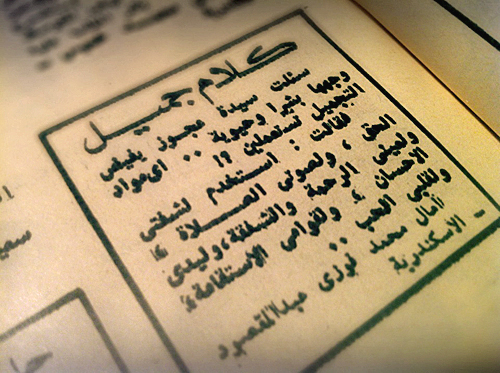 كلام جميل
سئلت سيدة عجوز يفيض
وجهها بشرا وحيوية .. اى مواد
التجميل تستعملين ؟!
فقالت : استخدم لشفتى
الحق ، ولصوتى الصلاة ،
ولعينى الرحمة والشفقة ، وليدى
الاحسان ، ولقوامى الاستقامة ،
ولقلبى الحب ..
آمال محمد فوزى عبدالمقصود
- الاسكندرية